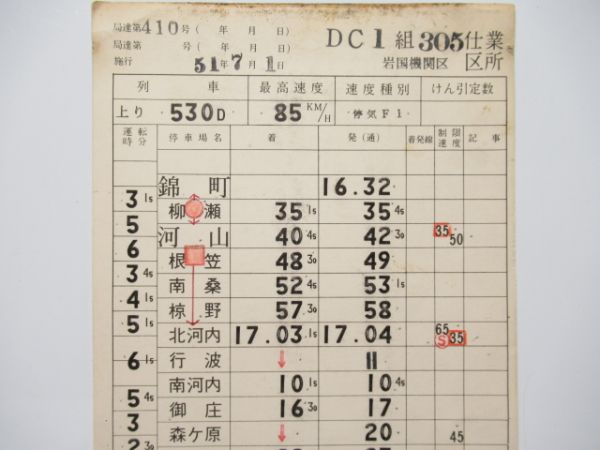 局達第410号(　年　月　日)
局達第　号(　年　月　日)
施行　51年7月1日
DC1組305仕業
岩国機関区　区所
列車　最高速度　速度種別　けん引定数
上り　530D　85KM/H　停気F1
運転時分　停車場名　着　発(通)　着発線　制限速度　記事
錦町　16.32
3 1s
柳瀬　35 1s　35 4s
5
河山　40 4s　42 30　35 50
6
根笠　48 30　49
3 4s
南桑　52 4s　53 1s
4 1s
椋野　57 30　58
5 1s
北河内　17.03 1s　17.04　65 S 35
行波　↓　11
6 1s
南河内　10 1s　10 4s
5 4s
御庄　16 30　17
3
森ケ原　↓　20　45
2 30